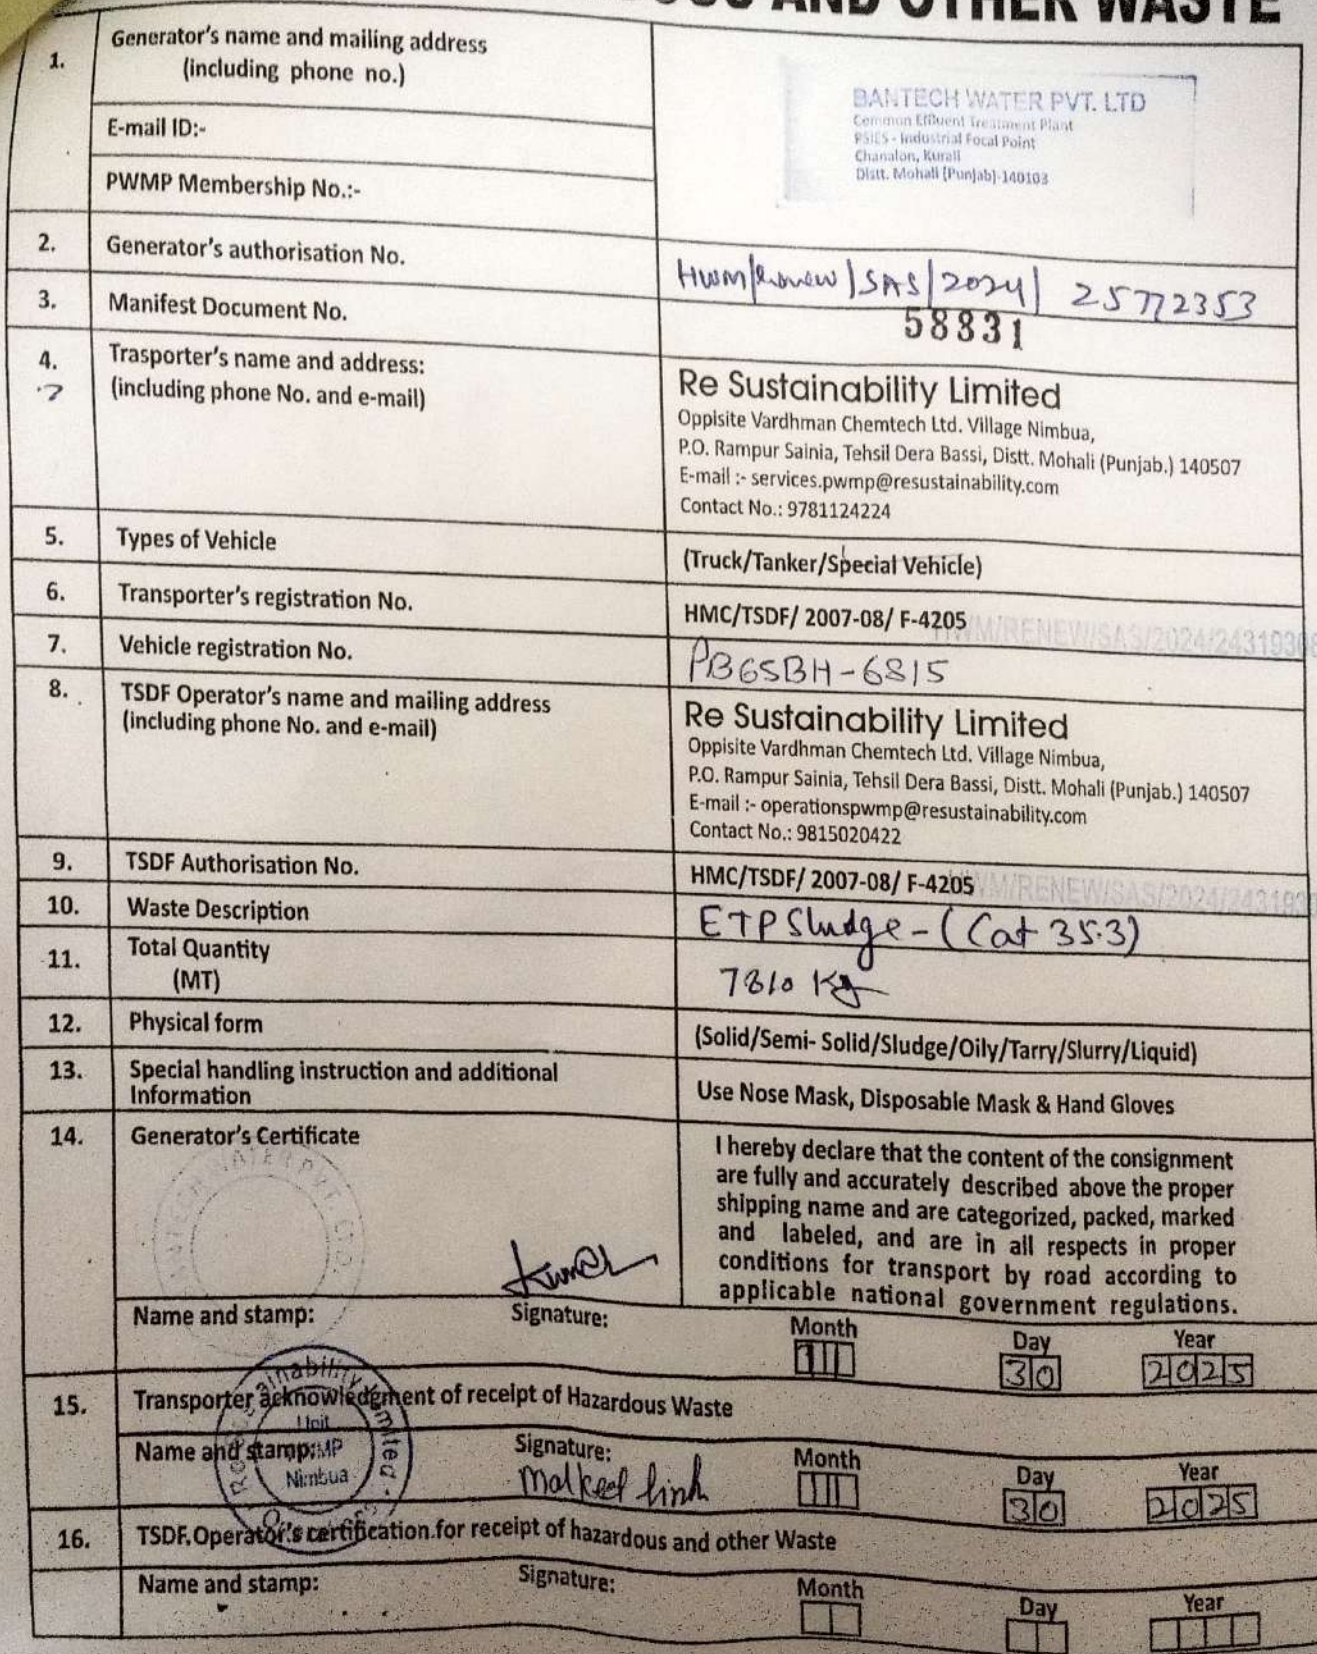 AND OTHER WASTE
1. Generator's name and mailing address
(including phone no.)
BANTECH WATER PVT. LTD
Common Effluent Treatment Plant
PSIES - Industrial Focal Point
Chanalon, Kurali
Distt. Mohali (Punjab)-140103
E-mail ID:-
PWMP Membership No.:-
2. Generator's authorisation No.
HWM/renew/SAS/2024/ 25772353
3. Manifest Document No.
58831
4. Trasporter's name and address:
(including phone No. and e-mail)
Re Sustainability Limited
Oppisite Vardhman Chemtech Ltd. Village Nimbua,
P.O. Rampur Sainia, Tehsil Dera Bassi, Distt. Mohali (Punjab.) 140507
E-mail :- services.pwmp@resustainability.com
Contact No.: 9781124224
5. Types of Vehicle
(Truck/Tanker/Special Vehicle)
6. Transporter's registration No.
HMC/TSDF/ 2007-08/ F-4205
HWM/RENEW/SAS/2024/2431930
7. Vehicle registration No.
PB65BH-6815
8. TSDF Operator's name and mailing address
(including phone No. and e-mail)
Re Sustainability Limited
Oppisite Vardhman Chemtech Ltd. Village Nimbua,
P.O. Rampur Sainia, Tehsil Dera Bassi, Distt. Mohali (Punjab.) 140507
E-mail :- operationspwmp@resustainability.com
Contact No.: 9815020422
9. TSDF Authorisation No.
HMC/TSDF/ 2007-08/ F-4205
WM/RENEW/SAS/2024/2431930
10. Waste Description
ETP Sludge - (Cat 35.3)
11. Total Quantity
(MT)
7810 Kg
12. Physical form
(Solid/Semi- Solid/Sludge/Oily/Tarry/Slurry/Liquid)
13. Special handling instruction and additional
Information
Use Nose Mask, Disposable Mask & Hand Gloves
14. Generator's Certificate
I hereby declare that the content of the consignment
are fully and accurately described above the proper
shipping name and are categorized, packed, marked
and labeled, and are in all respects in proper
conditions for transport by road according to
applicable national government regulations.
BANTECH WATER PVT. LTD.
Name and stamp: Signature: Month Day Year
11 30 2025
15. Transporter acknowledgment of receipt of Hazardous Waste
Name and stamp: Signature: Month Day Year
Malkeet 11 30 2025
Unit
Nimbua
16. TSDF.Operator's certification for receipt of hazardous and other Waste
Name and stamp: Signature: Month Day Year